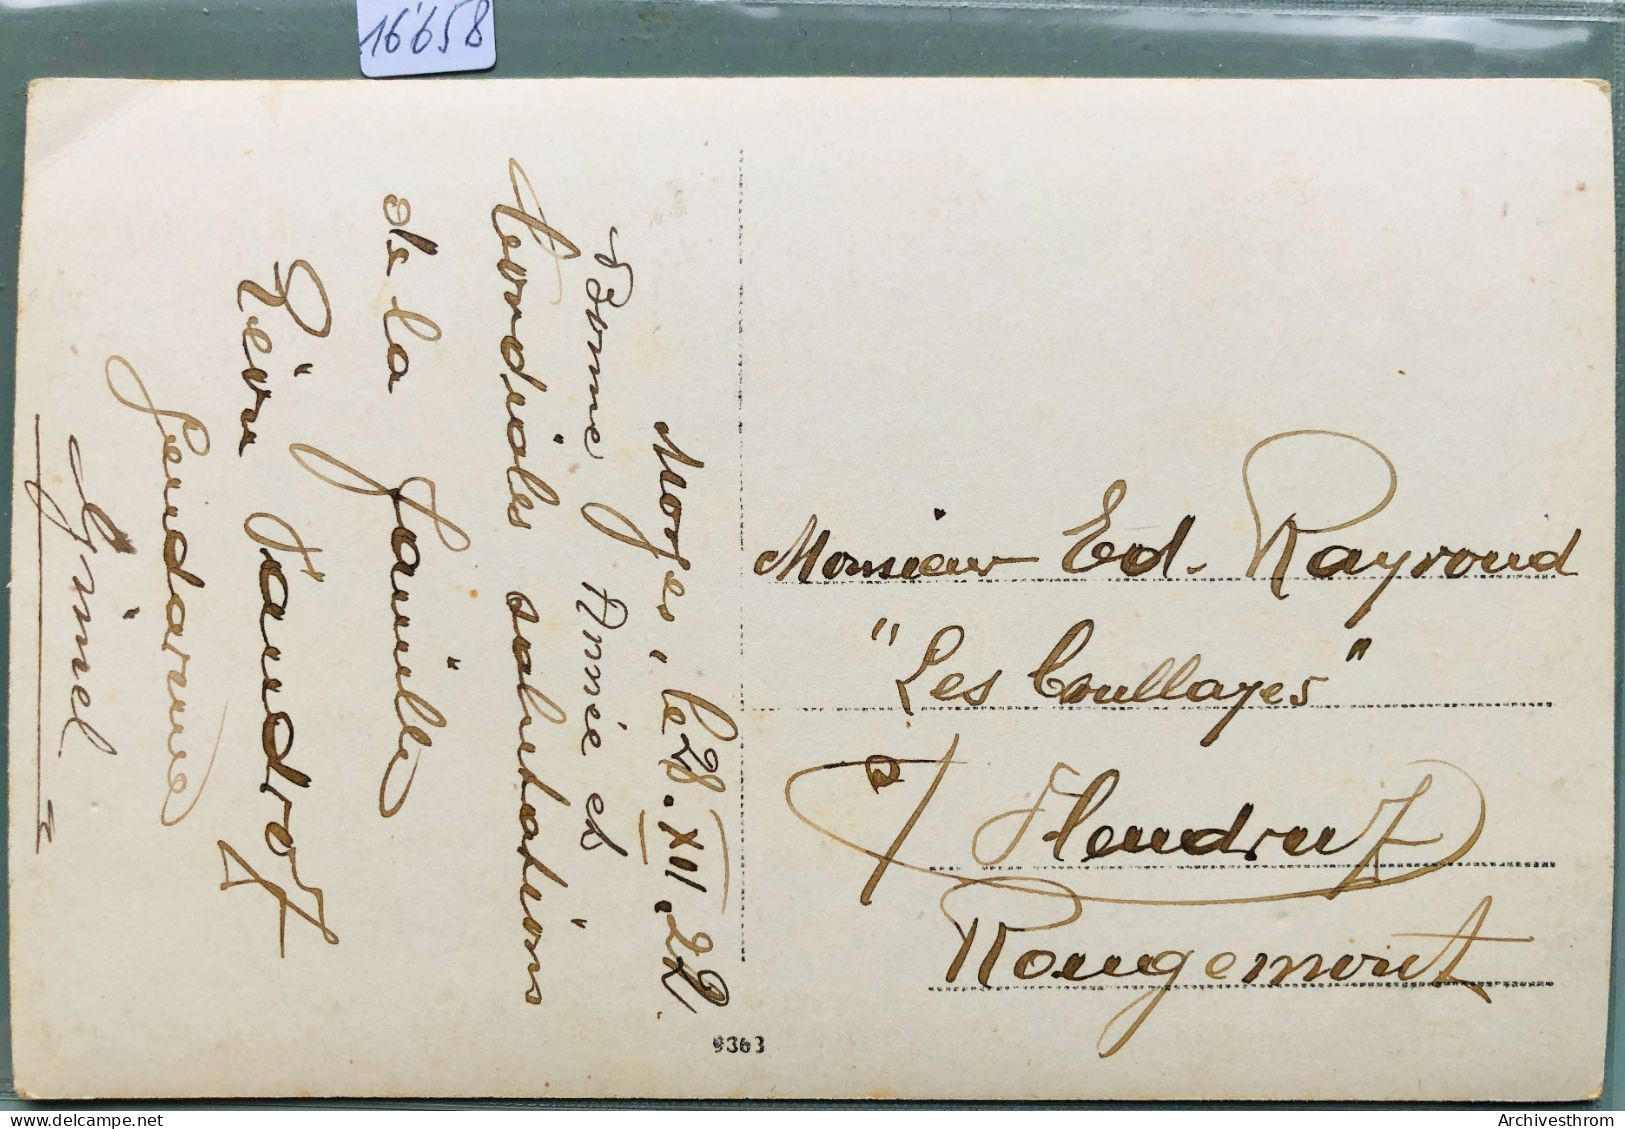 16'658
Morges, le 28.XII.22.
Bonne Année et
Cordiales salutations
de la famille
Jaudrof
Gendarme
Gimel
Monsieur Ed. Rayroud
"Les Coullayes"
s/ Flendruz
Rougemont
9363
www.delcampe.net
Archivesthrom